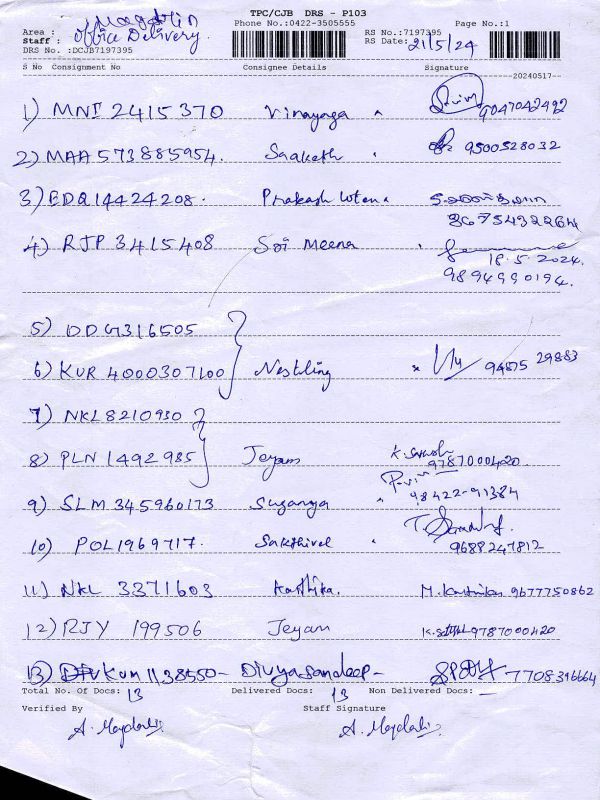 TPC/CJB DRS - P103
Magdalin
Area : Office Delivery
Phone No.:0422-3505555
RS No.:7197395
Page No.:1
Staff :
RS Date: 21/5/24
DRS No. :DCJB7197395
S No Consignment No Consignee Details Signature
20240517
1) MNI 2415370 Vinayaga 9047042492
2) MAA 573885954. Saaketh 9500528032
3) EDQ14424208. Prakash
8675432264
4) RJP 3415408 Sri Meena
18.5.2024.
9894990194.
5) DDG316505
6) KUR 4000307100 Nestling 94875 29883
7) NKL8210930
8) PLN 1492985 Jeyam 9787000420
9) SLM 345960173 Suganya 98422-91384
10) POL1969717. Sakthivel 9688247812
11) NKL 3371603 Karthika. M. Karthika 9677750862
12) RJY 199506 Jeyam 9787000420
13) KUM 1138550- Divyasandeep- 7708396664
Total No. Of Docs: 13 Delivered Docs: 13 Non Delivered Docs: —
Verified By Staff Signature
A. Magdalin A. Magdalin